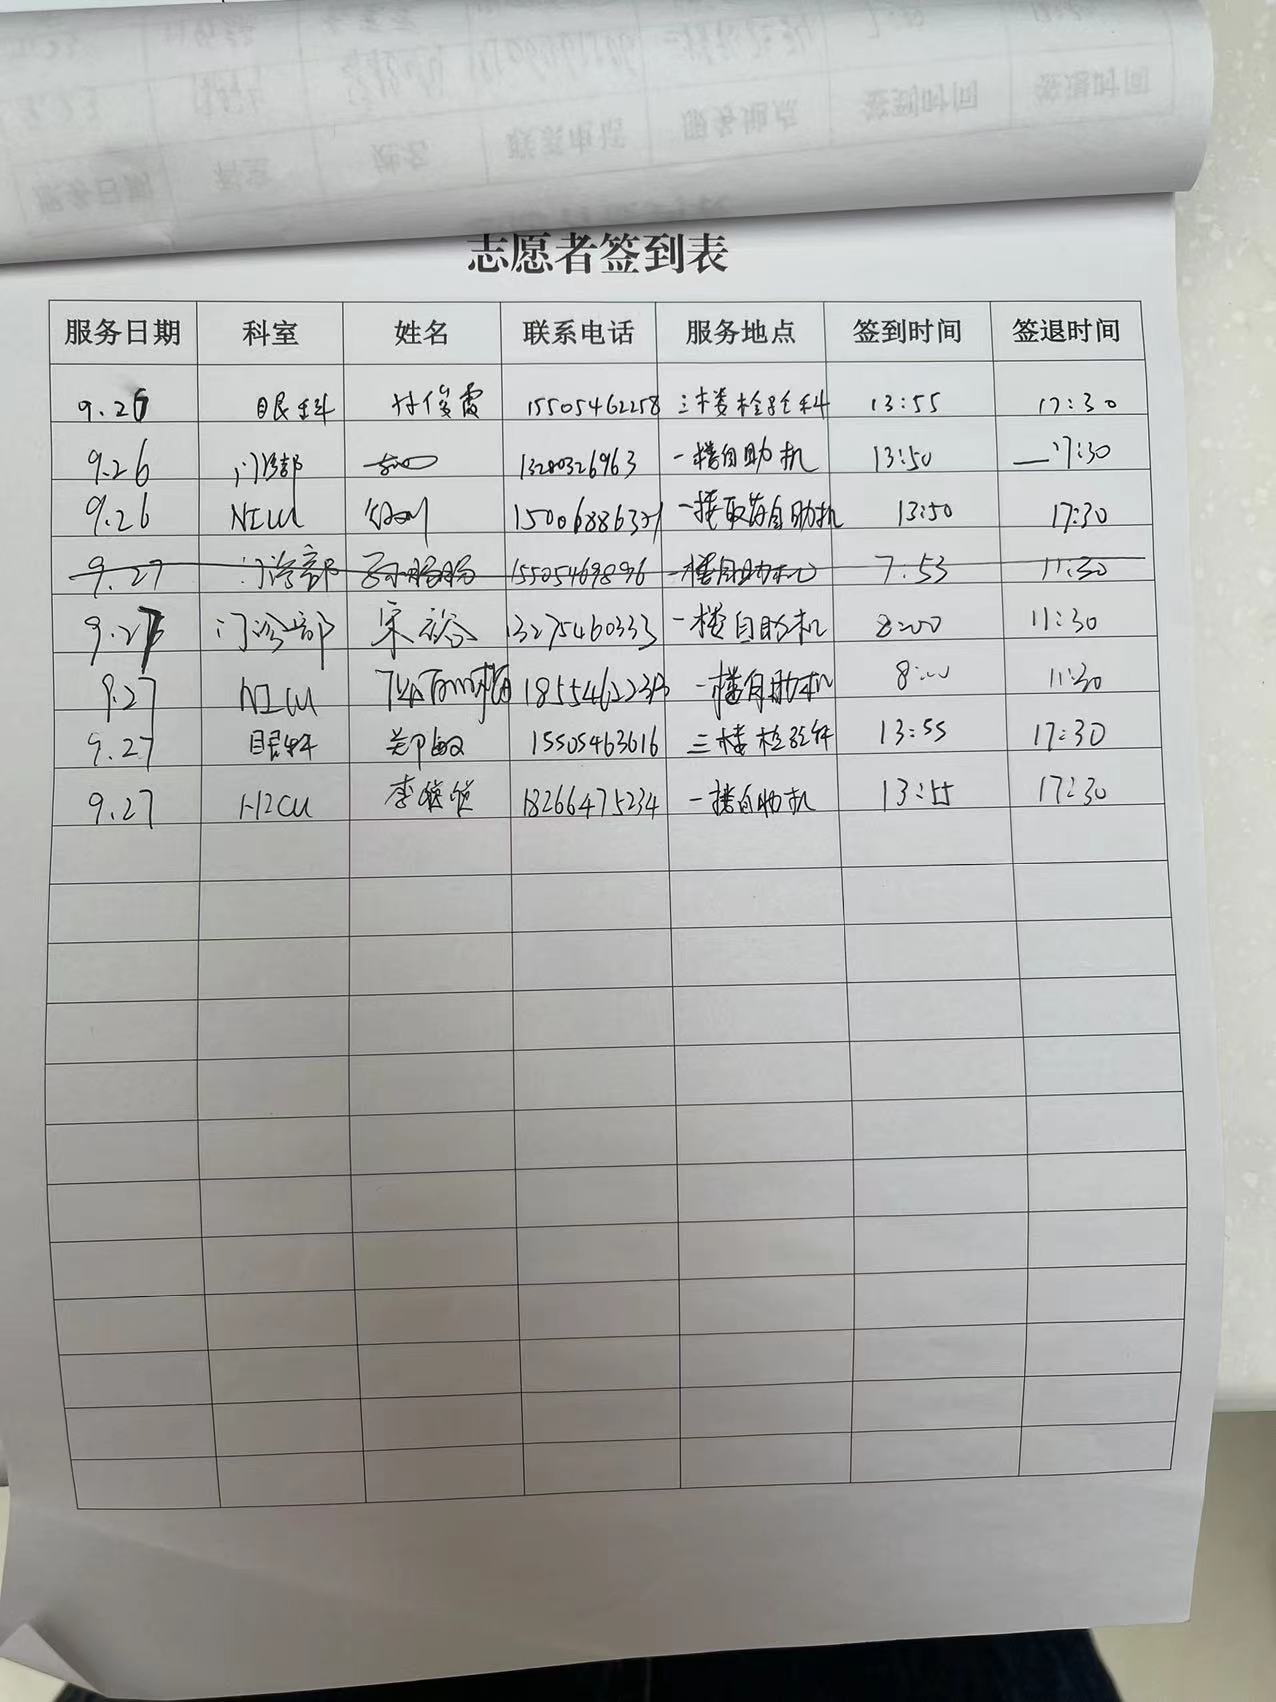 志愿者签到表
服务日期 科室 姓名 联系电话 服务地点 签到时间 签退时间
9.26 眼科 付俊霞 15505462258 三楼检验科 13:55 17:30
9.26 门诊部 13280326963 一楼自助机 13:50 17:30
9.26 NICU 一楼取药自助机 13:50 17:30
9.27 门诊部 15505469896 一楼自助机 7:53 11:30
9.27 门诊部 宋裕 13275460333 一楼自助机 8:00 11:30
9.27 NICU 一楼自助机 8:00 11:30
9.27 眼科 郑敏 15505463616 三楼检验科 13:55 17:30
9.27 18266475234 一楼自助机 13:55 17:30